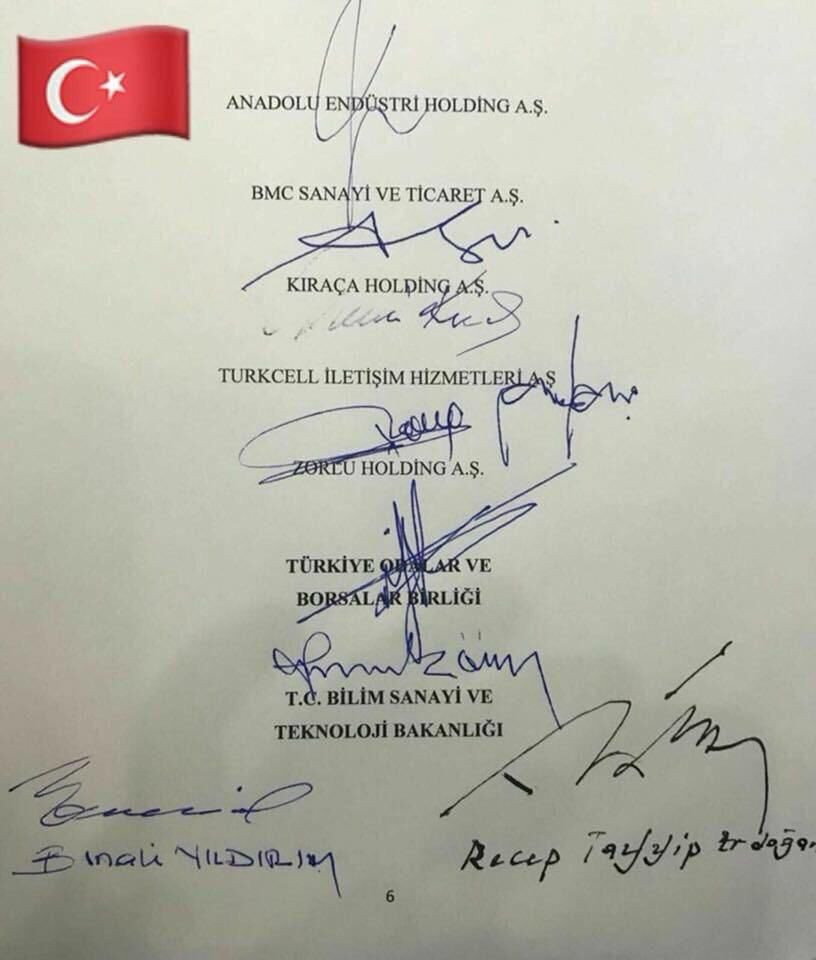 ANADOLU ENDÜSTRİ HOLDİNG A.Ş.
BMC SANAYİ VE TİCARET A.Ş.
KIRAÇA HOLDİNG A.Ş.
TURKCELL İLETİŞİM HİZMETLERİ A.Ş
ZORLU HOLDİNG A.Ş.
TÜRKİYE ODALAR VE
BORSALAR BİRLİĞİ
T.C. BİLİM SANAYİ VE
TEKNOLOJİ BAKANLIĞI
Binali YILDIRIM
Recep Tayyip Erdoğan
6